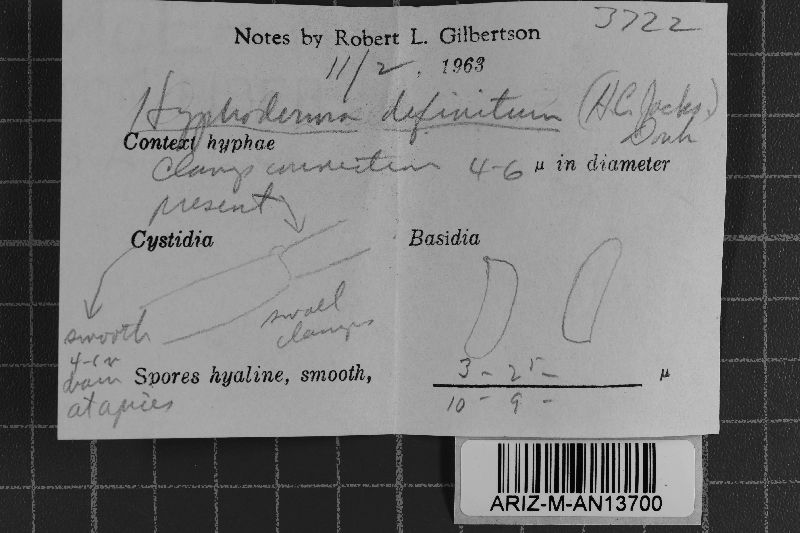 3722
Notes by Robert L. Gilbertson
11/2, 1963
Hyphoderma definitum (H.S. Jacks.)
Donk
Context hyphae
Clamp connections 4-6 μ in diameter
present
Cystidia
Basidia
small
clamps
smooth
diam
at apices
Spores hyaline, smooth,
3 - 25 - μ
10 - 9 -
ARIZ-M-AN13700